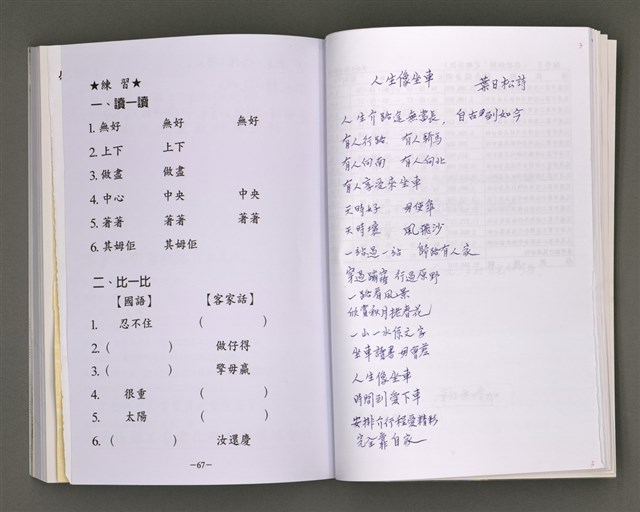 ★練 習★
一、讀一讀
1. 無好 無好 無好
2. 上下 上下
3. 做盡 做盡
4. 中心 中央 中央
5. 著著 著著 著著
6. 其姆佢 其姆佢
二、比一比
【國語】 【客家話】
1. 忍不住 ( )
2. ( ) 做仔得
3. ( ) 擎毋贏
4. 很重 ( )
5. 太陽 ( )
6. ( ) 汝還慶
－67－
人生像坐車 葉日松詩
人生介路途無當長，自古到如今
有人行路 有人騎馬
有人向南 有人向北
有人享受來坐車
天時好 毋使傘
天時壞 風飛沙
一站過一站 歸路有人家
穿過 行過原野
一路看風景
欣賞秋月挷春花
一山一水係文字
坐車讀書毋會差
人生像坐車
時間到愛下車
安排介行程愛精彩
完全靠自家